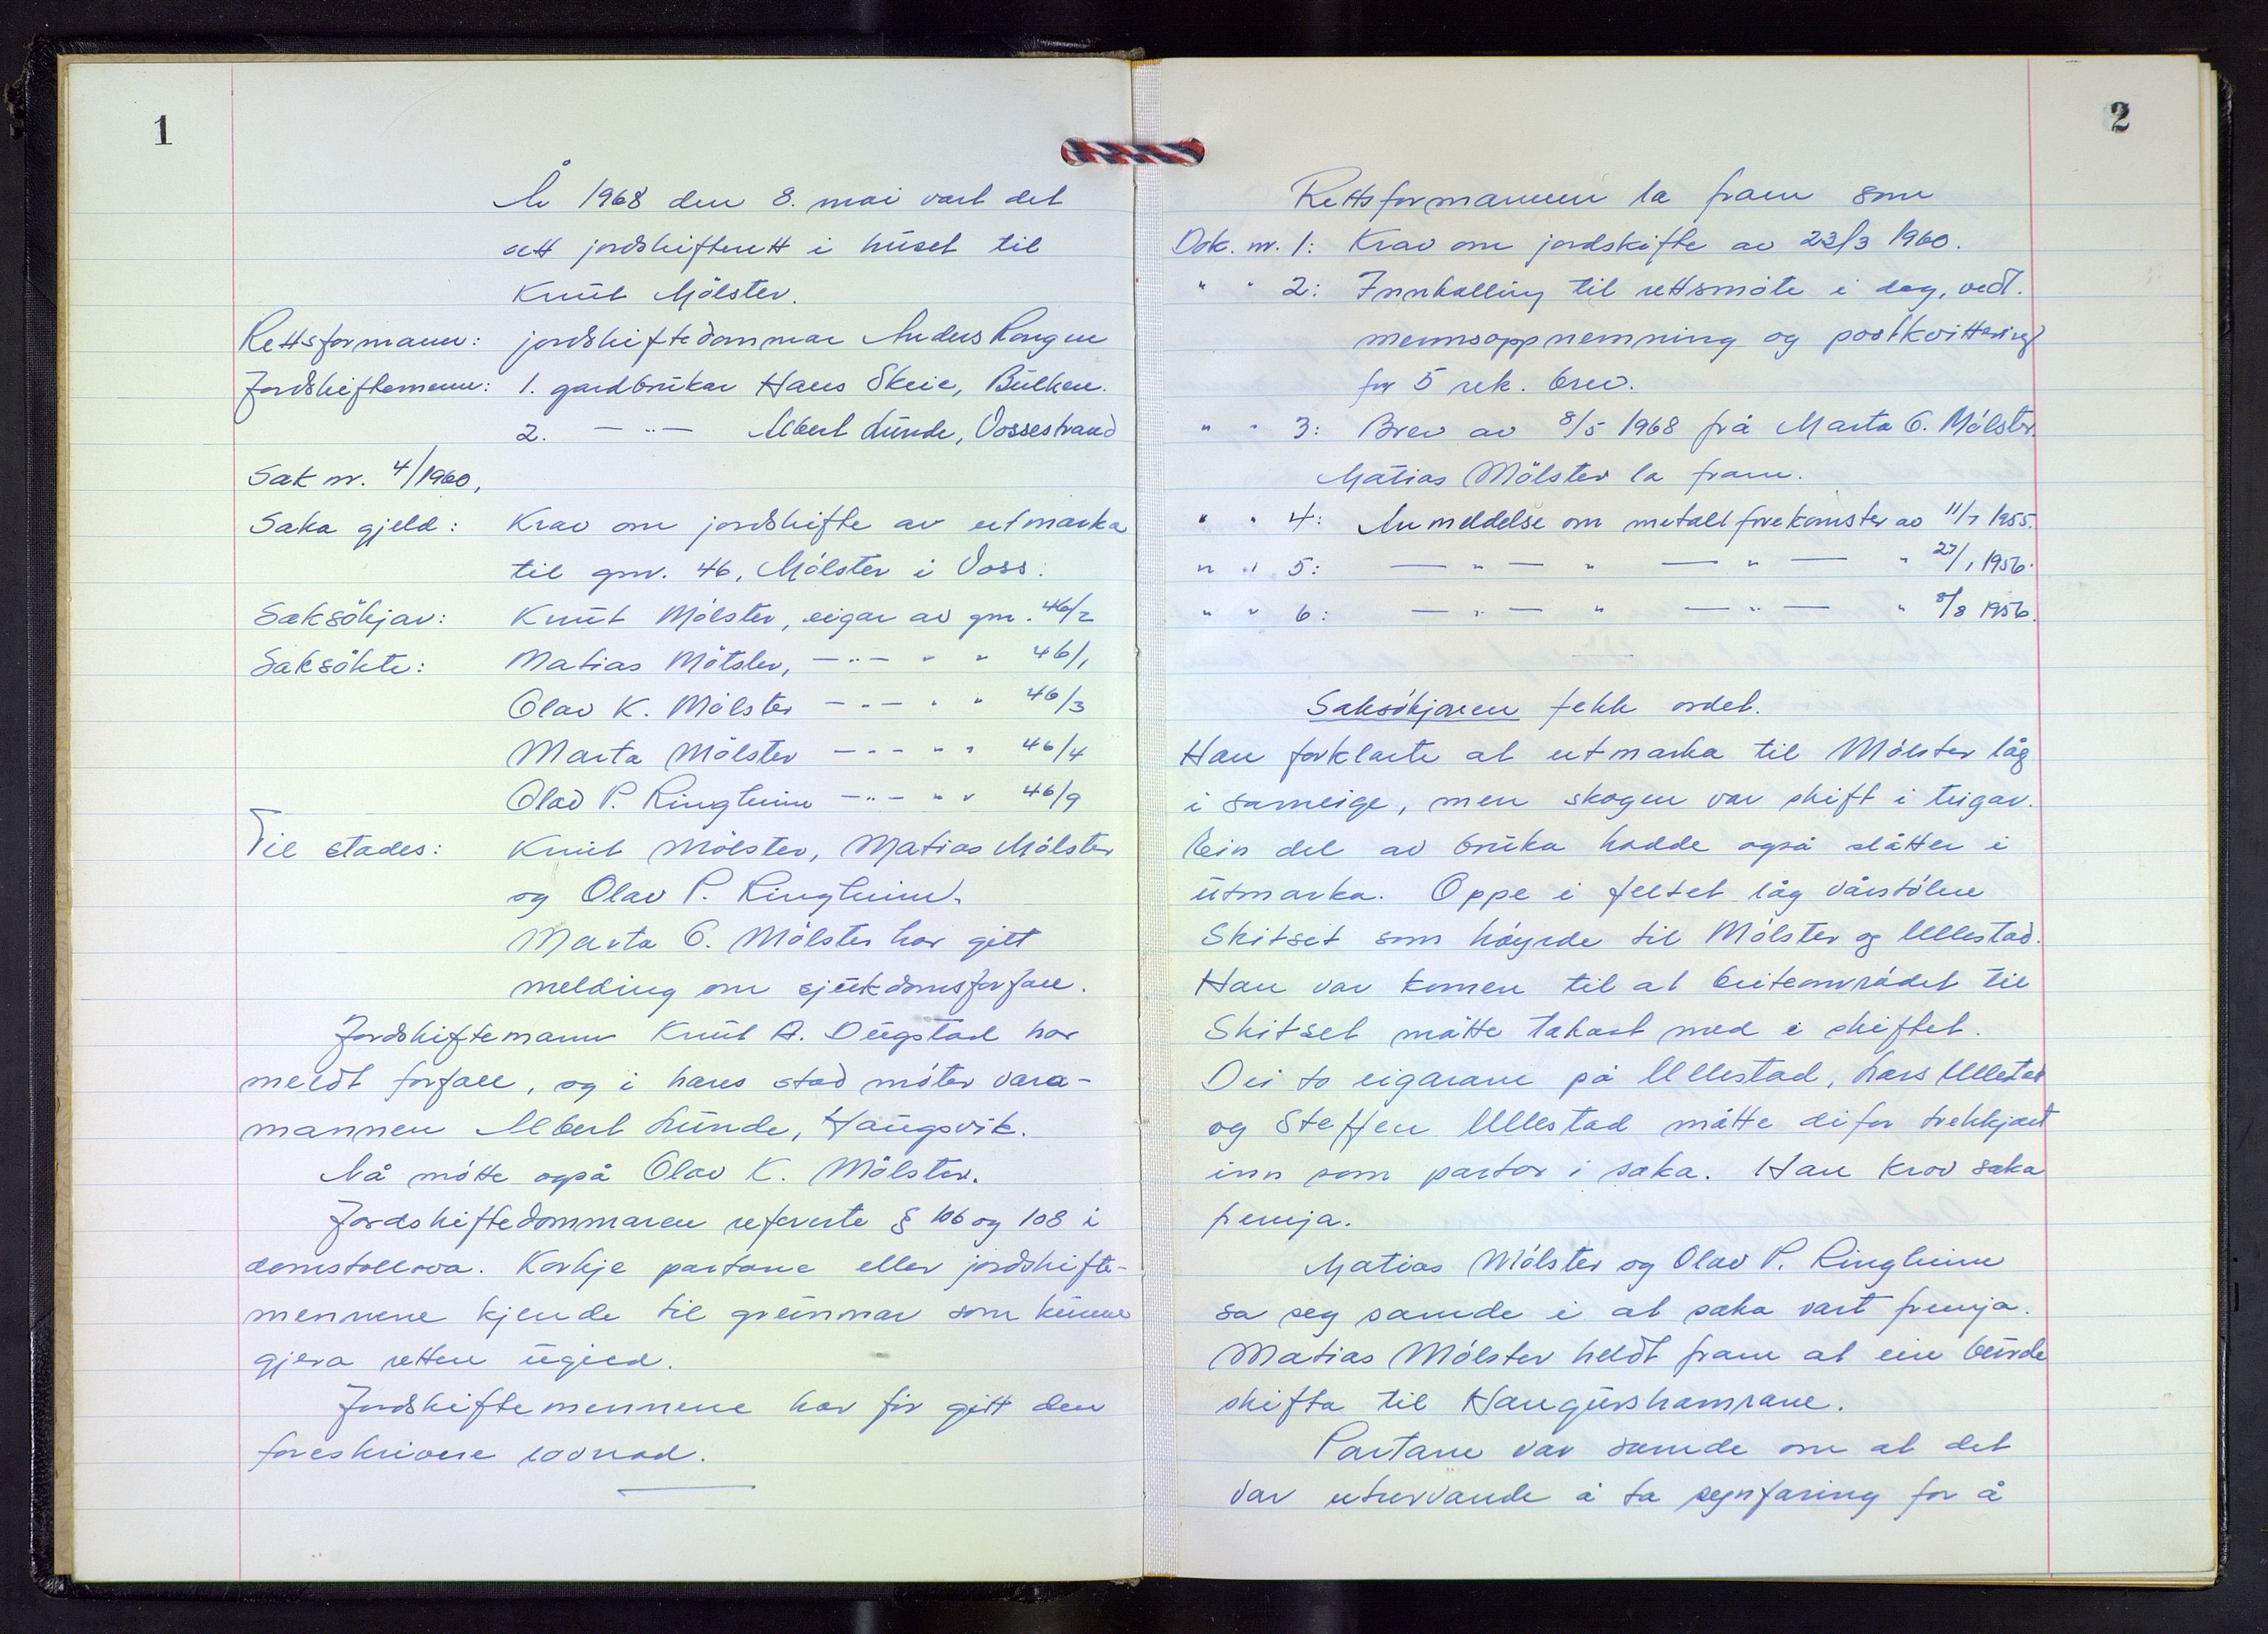 1
År 1968 den 8. mai vart det
sett jordskifterett i huset til
Knut Mölster.
Rettsformann: jordskiftedommar Anders Rongen
Jordskiftemenn: 1. gardbrukar Hans Skeie, Bulken.
2. — " — Albert Lunde, Vossestrand
Sak nr. 4/1960,
Saka gjeld: Krav om jordskifte av utmarka
til gnr. 46, Mölster i Voss.
Saksökjar: Knut Mölster, eigar av gnr. 46/2
Saksökte: Matias Mölster, — " — " " 46/1
Olav K. Mölster — " — " " 46/3
Marta Mölster — " — " " 46/4
Olav P. Ringheim — " — " " 46/9
Til stades: Knut Mölster, Matias Mölster
og Olav P. Ringheim.
Marta G. Mölster har gitt
melding om sjukdomsforfall.
Jordskiftemann Knut A. Dugstad har
meldt forfall, og i hans stad möter vara-
mannen Albert Lunde, Haugsvik.
Nå mötte også Olav K. Mölster.
Jordskiftedommaren refererte § 106 og 108 i
domstollova. Korkje partane eller jordskifte-
mennene kjende til grunnar som kunne
gjera retten ugild.
Jordskiftemennene har för gitt den
foreskrivne lovnad.
2
Rettsformannen la fram som
Dok. nr. 1: Krav om jordskifte av 23/3 1960.
" " 2: Innkalling til rettsmöte i dag, vedt.
mennsoppnemning og postkvittering
for 5 rek. brev.
" " 3: Brev av 8/5 1968 frå Marta G. Mölster.
Matias Mölster la fram.
" " 4: Anmeldelse om metallforekomster av 11/7 1955.
" " 5: — " — " — " — " 27/1 1956.
" " 6: — " — " — " — " 8/8 1956.
Saksökjaren fekk ordet.
Han forklarte at utmarka til Mölster låg
i sameige, men skogen var skift i teigar.
Ein del av bruka hadde også slåtter i
utmarka. Oppe i feltet låg vårstölen
Skitset som höyrde til Mölster og Ullestad.
Han var komen til at beiteområdet til
Skitset måtte takast med i skiftet.
Dei to eigarane på Ullestad, Lars Ullestad
og Steffen Ullestad måtte difor trekkjast
inn som partar i saka. Han krov saka
fremja.
Matias Mölster og Olav P. Ringheim
sa seg samde i at saka vart fremja.
Matias Mölster heldt fram at ein burde
skifta til Haugurshamrane.
Partane var samde om at det
var uturvande å ta synfaring for å